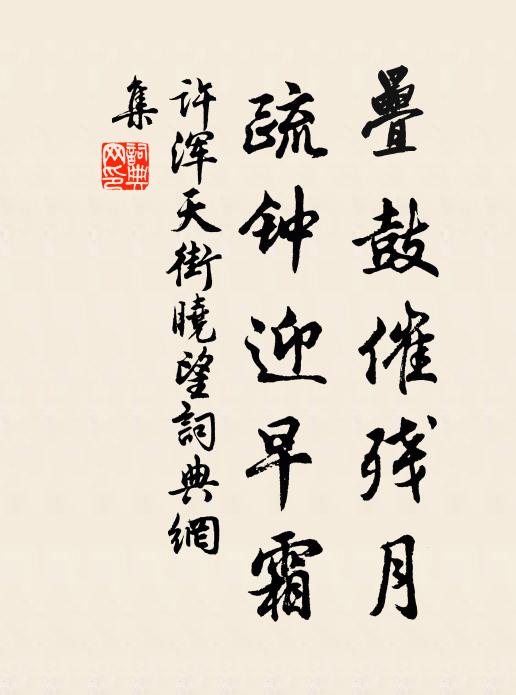 疊鼓催残月
疏钟迎早霜
许渾天街曉望詞典網
集
詞典
网印